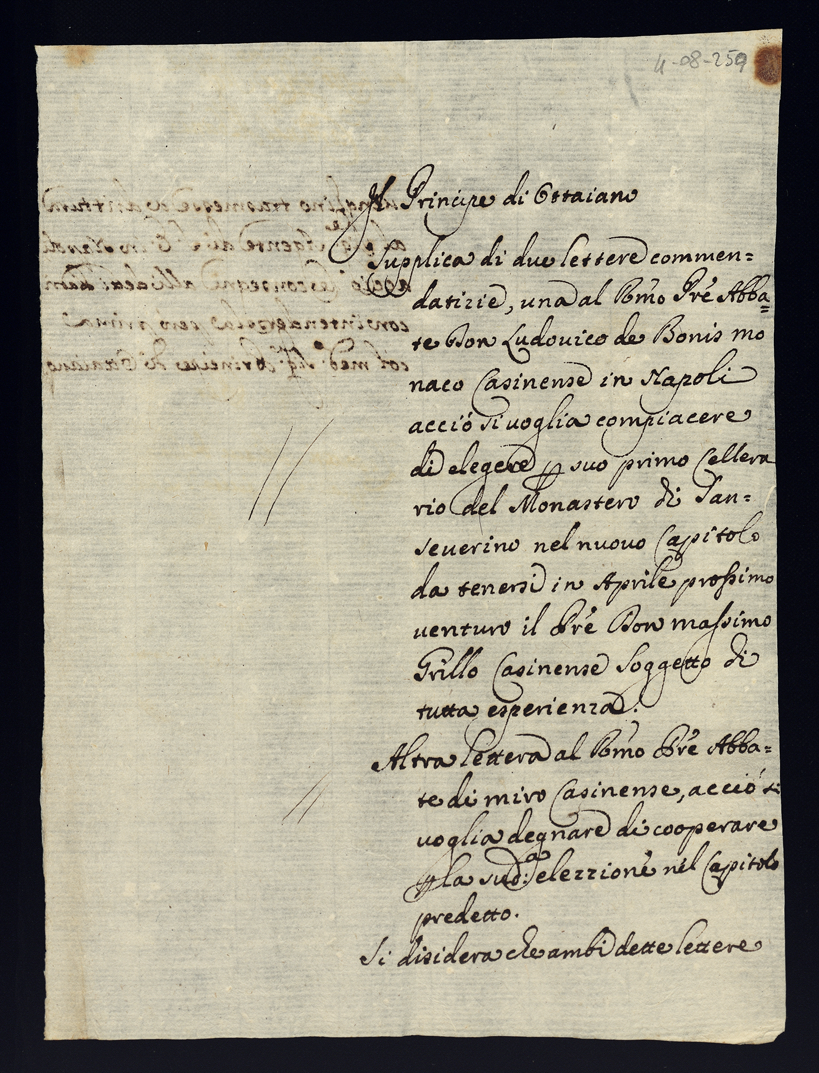 4-08-259
Il Principe di Ottaiano
Supplica di due lettere commen=
datizie, una al Rmo Pre Abba=
te Don Ludovico de Bonis mo
naco Casinense in Napoli
acciò si voglia compiacere
di elegere p suo primo Cellera
rio del Monastero di San=
severino nel nuovo Capitolo
da tenersi in Aprile prossimo
venturo il Pre Don Massimo
Grillo Casinense Soggetto di
tutta esperienza.
Altra lettera al Rmo Pre Abba=
te di miro Casinense, acciò si
voglia degnare di cooperare
p la sud:a elezzione nel Capitolo
predetto.
Si disidera che ambi dette lettere